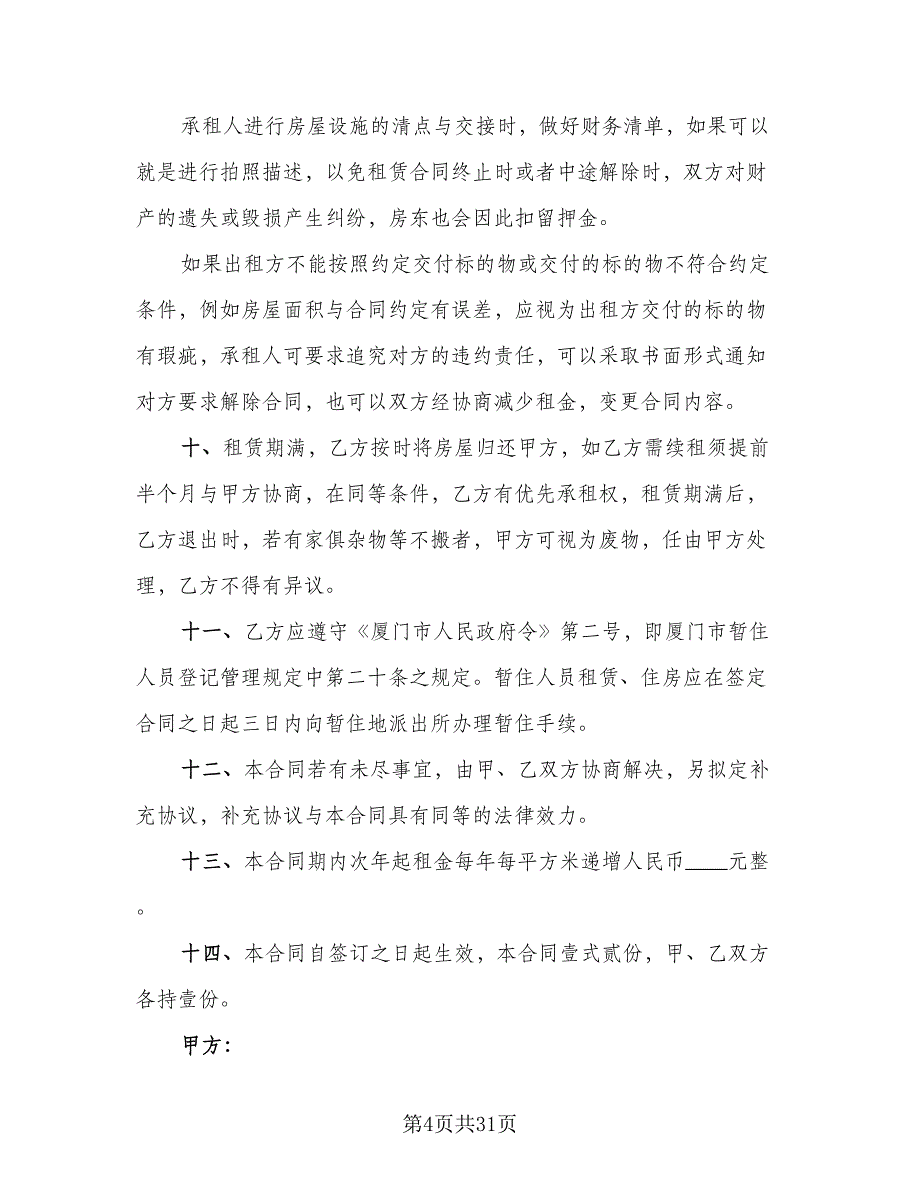 承租人进行房屋设施的清点与交接时，做好财务清单，如果可以
就是进行拍照描述，以免租赁合同终止时或者中途解除时，双方对财
产的遗失或毁损产生纠纷，房东也会因此扣留押金。
如果出租方不能按照约定交付标的物或交付的标的物不符合约定
条件，例如房屋面积与合同约定有误差，应视为出租方交付的标的物
有瑕疵，承租人可要求追究对方的违约责任，可以采取书面形式通知
对方要求解除合同，也可以双方经协商减少租金，变更合同内容。
十、租赁期满，乙方按时将房屋归还甲方，如乙方需续租须提前
半个月与甲方协商，在同等条件，乙方有优先承租权，租赁期满后，
乙方退出时，若有家俱杂物等不搬者，甲方可视为废物，任由甲方处
理，乙方不得有异议。
十一、乙方应遵守《厦门市人民政府令》第二号，即厦门市暂住
人员登记管理规定中第二十条之规定。暂住人员租赁、住房应在签定
合同之日起三日内向暂住地派出所办理暂住手续。
十二、本合同若有未尽事宜，由甲、乙双方协商解决，另拟定补
充协议，补充协议与本合同具有同等的法律效力。
十三、本合同期内次年起租金每年每平方米递增人民币____元整
。
十四、本合同自签订之日起生效，本合同壹式贰份，甲、乙双方
各持壹份。
甲方：
第4页共31页